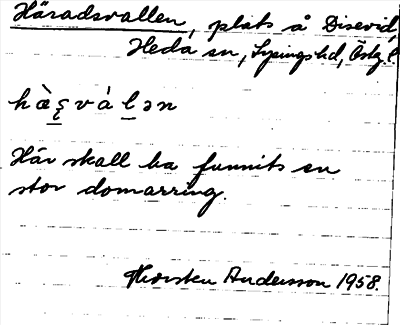 Häradsvallen, plats å Disevid,
Heda sn, Lysings hd, Östg. l.
hàṣvàlən
Här skall ha funnits en
stor domarring.
Thorsten Andersson 1958.